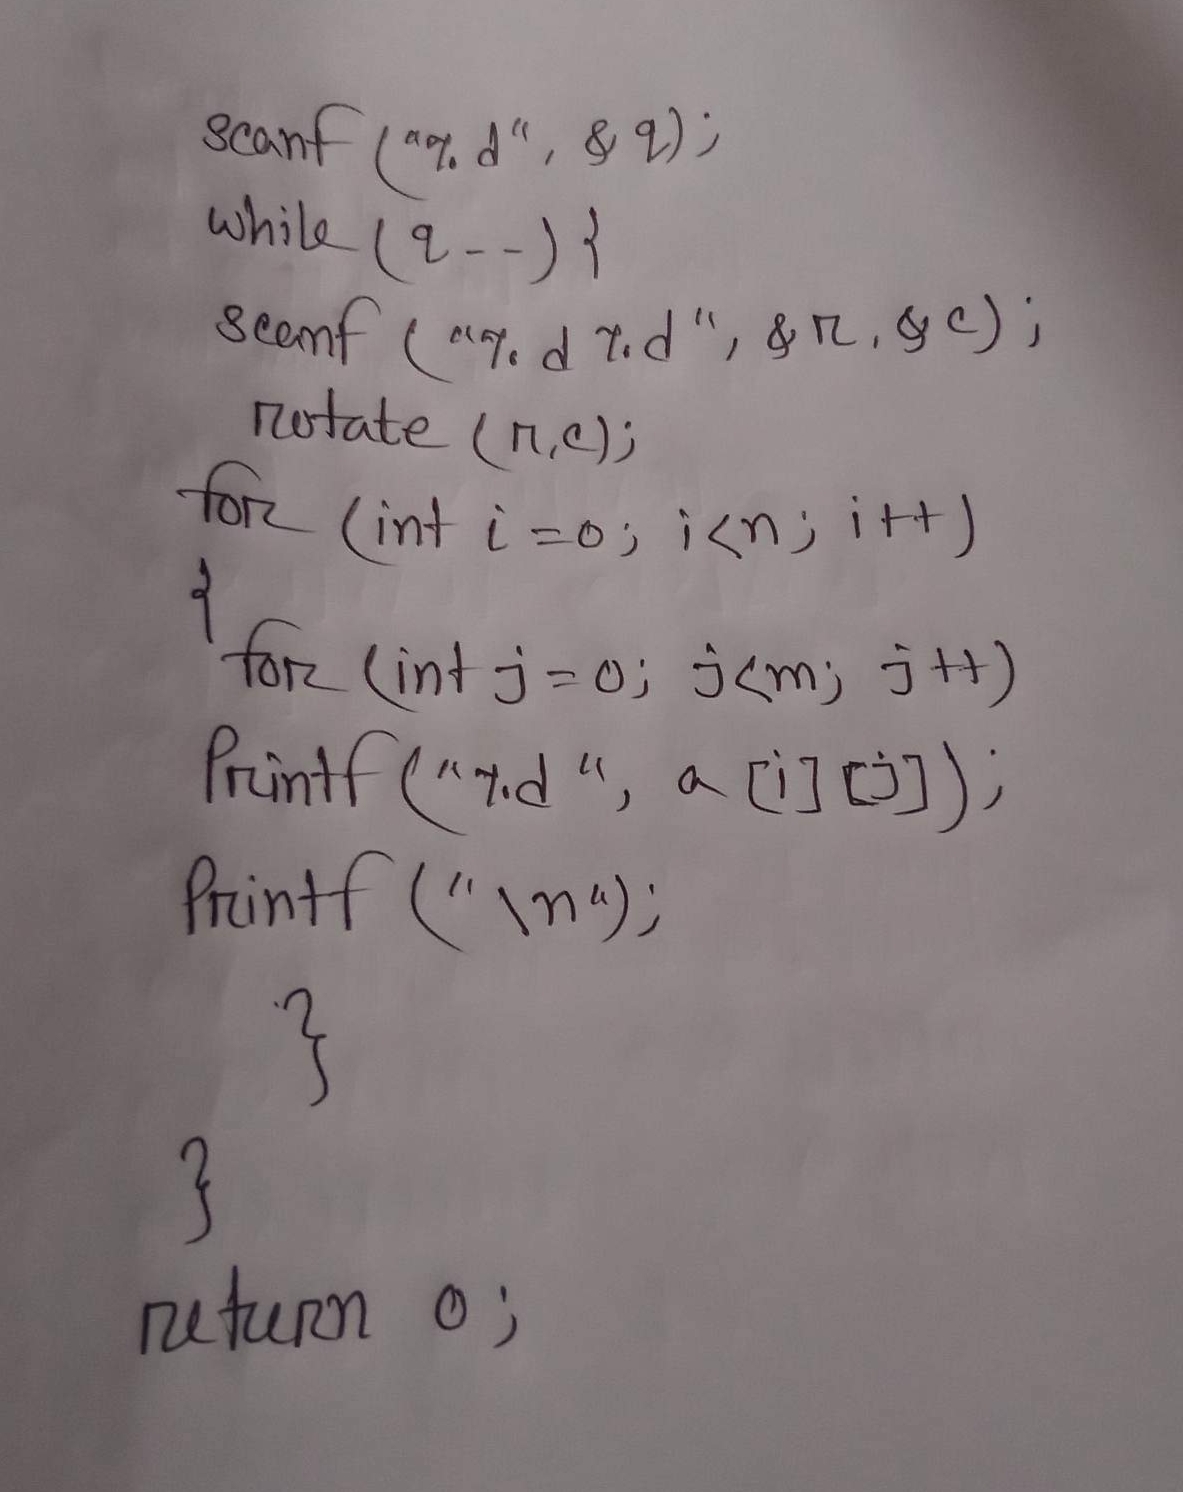 scanf ("%d", & q);
while (q--) {
scanf ("%d %d", &r, &c);
rotate (r,c);
for (int i=0; i<n; i++)
{
for (int j=0; j<m; j++)
Printf ("%d ", a [i][j]);
Printf ("\n");
}
}
return 0;